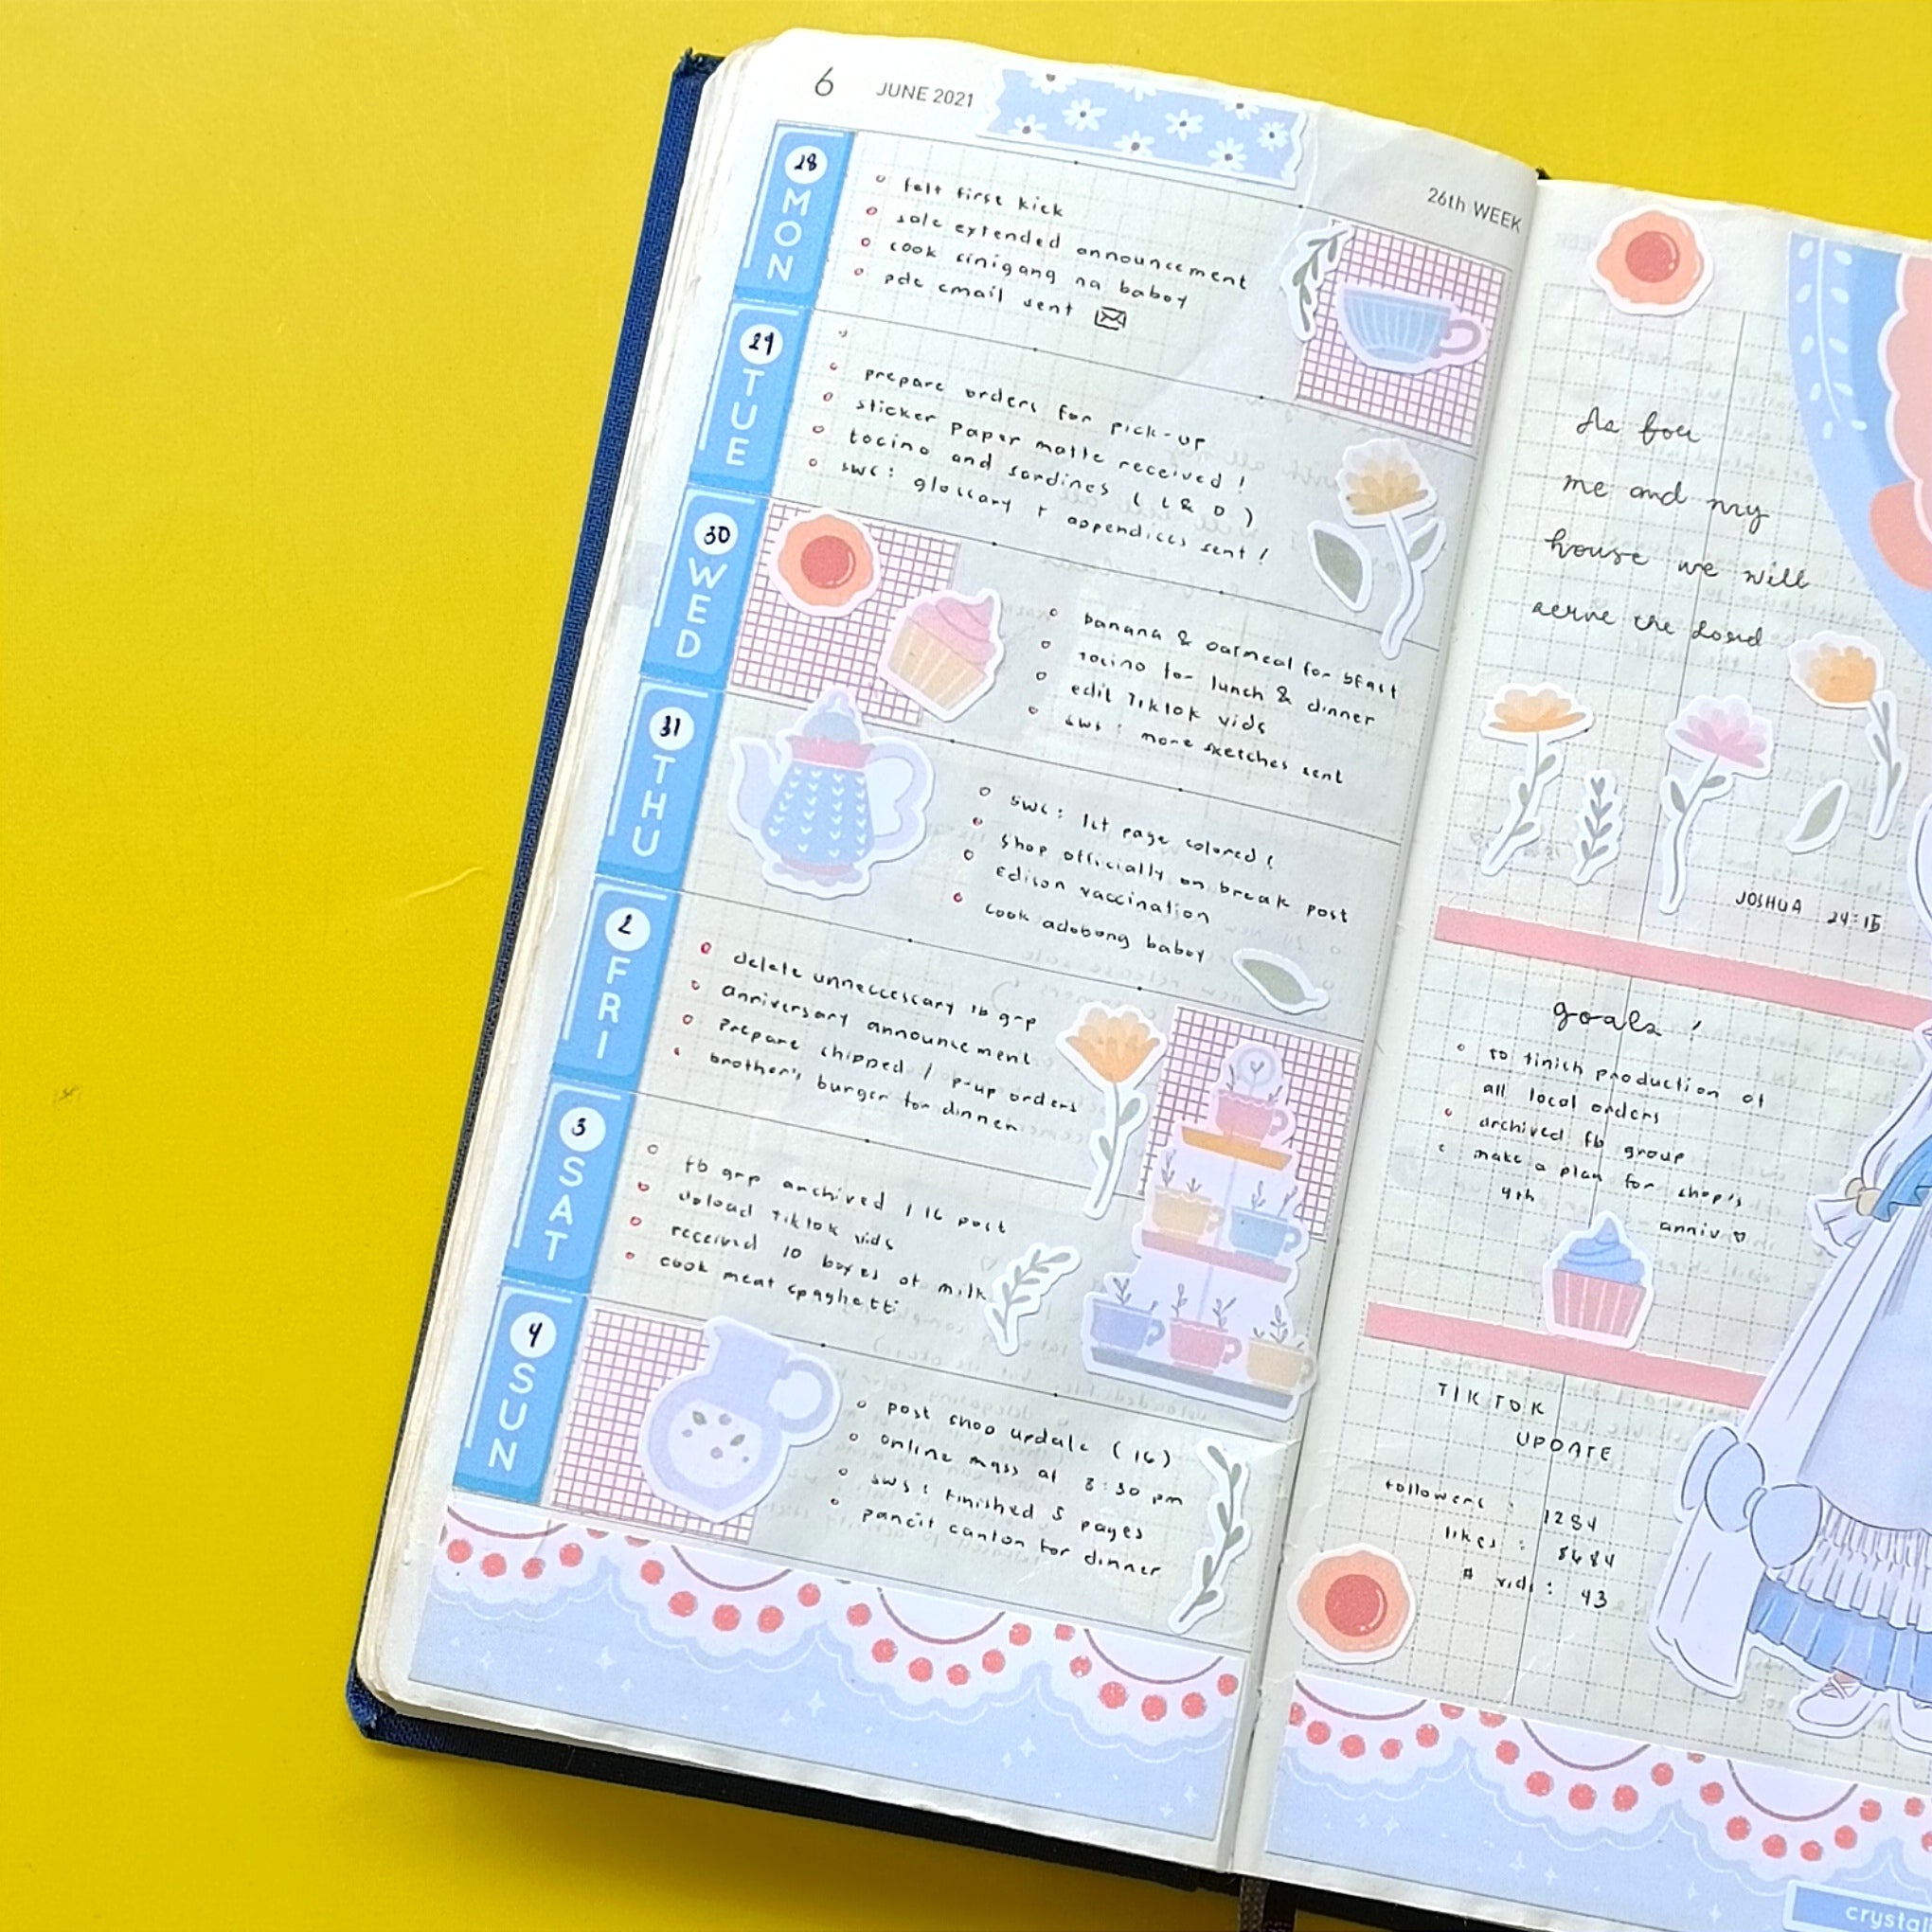 6 JUNE 2021
26th WEEK
28 MON
felt first kick
sale extended announcement
cook sinigang na baboy
pdc email sent
29 TUE
prepare orders for pick-up
sticker paper matte received!
tocino and sardines (L & D)
swc: glossary + appendices sent!
30 WED
banana & oatmeal for bfast
tocino for lunch & dinner
edit Tiktok vids
sws: more sketches sent
31 THU
swc: 1st page colored!
shop officially on break post
Edison vaccination
cook adobong baboy
2 FRI
delete unneccesary fb grp
anniversary announcement
prepare shipped / p-up orders
brother's burger for dinner
3 SAT
fb grp archived / IG post
upload Tiktok vids
received 10 boxes of milk
cook meat spaghetti
4 SUN
post shop update (IG)
online mass at 8:30 pm
sws: finished 5 pages
pancit canton for dinner
As for
me and my
house we will
serve the Lord
JOSHUA 24:15
goals!
to finish production of
all local orders
archived fb group
make a plan for shop's
4th anniv ♡
TIKTOK
UPDATE
followers: 1284
likes: 8684
# vids: 43